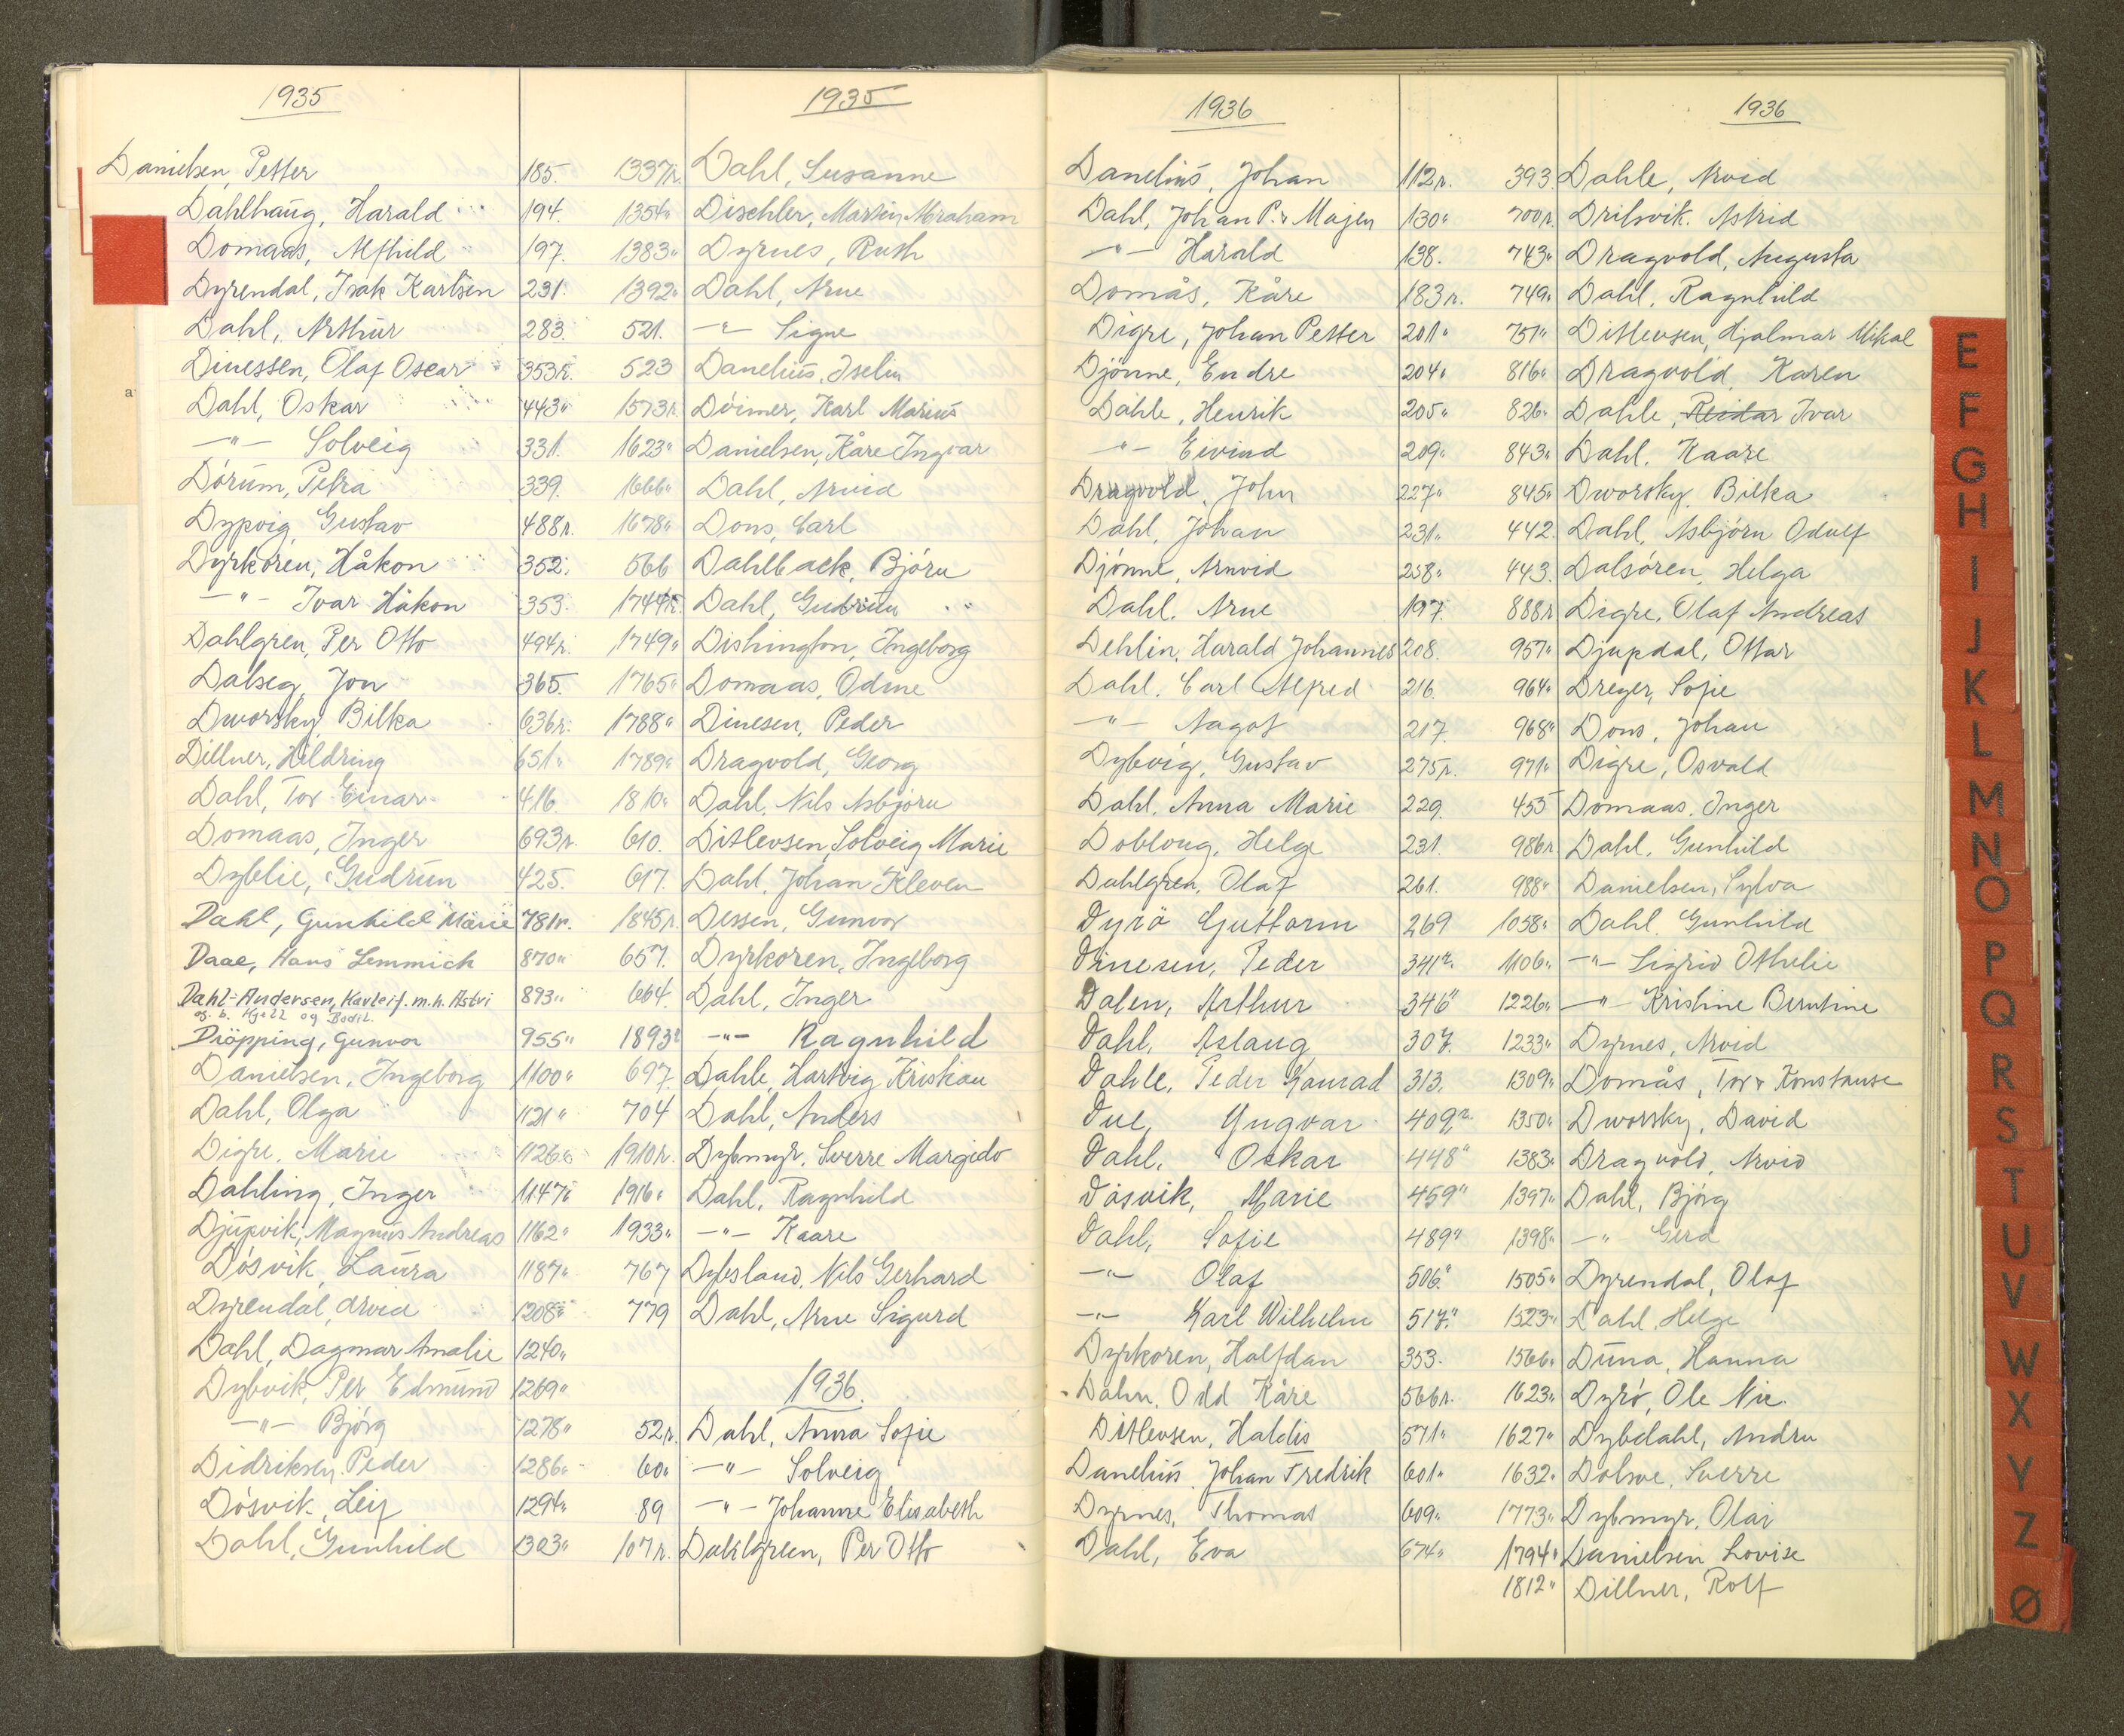 1935
Danielsen, Petter 185.
Dahlhaug, Harald 194.
Domaas, Alfhild 197.
Dyrendal, Isak Karlsen 231.
Dahl, Arthur 283.
Dinessen, Olaf Oscar 353r.
Dahl, Oskar 443"
—"— Solveig 331.
Dörum, Petra 339.
Dypvig, Gustav 488r.
Dyrkoren, Håkon 352.
—"— Ivar Håkon 353.
Dahlgren, Per Otto 494r.
Dalseg, Jon 365.
Dworsky, Bilka 636r.
Dillner, Hildring 651"
Dahl, Tor Einar 416.
Domaas, Inger 693r.
Dyblie, Gudrun 425.
Dahl, Gunhild Marie 781r.
Daae, Hans Lemmich 870"
Dahl-Andersen, Karleif. m.h. Astri 893"
og b. Kjell og Bodil.
Dröpping, Gunvor 955"
Danielsen, Ingeborg 1100"
Dahl, Olga 1121"
Digre, Marie 1126"
Dahling, Inger 1147"
Djupvik, Magnus Andreas 1162"
Dösvik, Laura 1187"
Dyrendal, Arvid 1208"
Dahl, Dagmar Amalie 1240"
Dybvik, Per Edmund 1269"
—"— Björg 1278"
Didriksen, Peder 1286"
Dösvik, Leif 1294"
Dahl, Gunhild 1303"
1935
1337r. Dahl, Susanne
1354" Dischler, Martin Abraham
1383" Dyrnes, Ruth
1392" Dahl, Arne
521. —"— Signe
523 Danelius, Iselin
1573r. Döimer, Karl Marius
1623" Danielsen, Kåre Ingvar
1666" Dahl, Arvid
1678" Dons, Carl
566 Dahlback, Björn
1744r. Dahl, Gudrun
1749" Dishington, Ingeborg
1765" Domaas, Odine
1788" Dinesen, Peder
1789" Dragvold, Georg
1810" Dahl, Nils Asbjörn
610. Ditlevsen, Solveig Marie
617. Dahl, Johan Kleven
1845r. Dessen, Gunvor
657. Dyrkoren, Ingeborg
664. Dahl, Inger
1893r —"— Ragnhild
697. Dahle, Hartvig Kristian
704 Dahl, Anders
1910r. Dybmyr, Sverre Margido
1916" Dahl, Ragnhild
1933" —"— Kaare
767 Dybsland, Nils Gerhard
779 Dahl, Arne Sigurd
1936.
52r. Dahl, Anna Sofie
60" —"— Solveig
89 —"— Johanne Elisabeth
107r. Dahlgreen, Per Otto
1936
Danelius, Johan 112r.
Dahl, Johan P. & Majen 130"
—"— Harald 138.
Domås, Kåre 183r.
Digre, Johan Petter 201"
Djönne, Endre 204"
Dahle, Henrik 205"
—"— Eivind 209"
Dragvold, John 227"
Dahl, Johan 231"
Djönne, Arnvid 258"
Dahl, Arne 197.
Dehlin, Harald Johannes 208.
Dahl, Carl Alfred 216.
—"— Aagot 217.
Dybvig, Gustav 275r.
Dahl, Anna Marie 229.
Doblong, Helge 231.
Dahlgren, Olaf 261.
Dyrö Guttorm 269
Dinesen, Peder 341r.
Dalen, Arthur 346"
Dahl, Aslaug 307.
Dahle, Peder Konrad 313.
Due, Yngvar 409r.
Dahl, Oskar 448"
Dösvik, Marie 459"
Dahl, Sofie 489"
—"— Olaf 506"
—"— Karl Wilhelm 517"
Dyrkoren, Halfdan 353.
Dahn, Odd Kåre 566r.
Ditlevsen, Haldis 571"
Danelius, Johan Fredrik 601"
Dyrnes, Thomas 609"
Dahl, Eva 674"
1936
393. Dahle, Arvid
700r. Drilsvik, Astrid
743" Dragvold, Augusta
749" Dahl, Ragnhild
751" Ditlevsen, Hjalmar Mikal
816" Dragvold, Karen
826" Dahle, Reidar Ivar
843" Dahl, Kaare
845" Dworsky, Bilka
442. Dahl, Asbjörn Odulf
443. Dalsören, Helga
888r Digre, Olaf Andreas
957" Djupdal, Ottar
964" Dreyer, Sofie
968" Dons, Johan
971" Digre, Osvald
455 Domaas, Inger
986r Dahl, Gunhild
988" Danielsen, Sylva
1058" Dahl, Gunhild
1106" —"— Sigrid Othelie
1226" —"— Kristine Berntine
1233" Dyrnes, Arvid
1309" Domås, Tor & Konstanse
1350" Dworsky, David
1383" Dragvold, Arvid
1397" Dahl, Björg
1398" —"— Gerd
1505" Dyrendal, Olaf
1523" Dahl, Helge
1566" Duna, Hanna
1623" Dyrö, Ole Nic.
1627" Dybdahl, Andru
1632" Dolsve, Sverre
1773" Dybmyr, Olai
1794" Danielsen Lovise
1812" Dillner, Rolf
E
F
G
H
I
J
K
L
M
N
O
P
Q
R
S
T
U
V
W
X
Y
Z
Ø